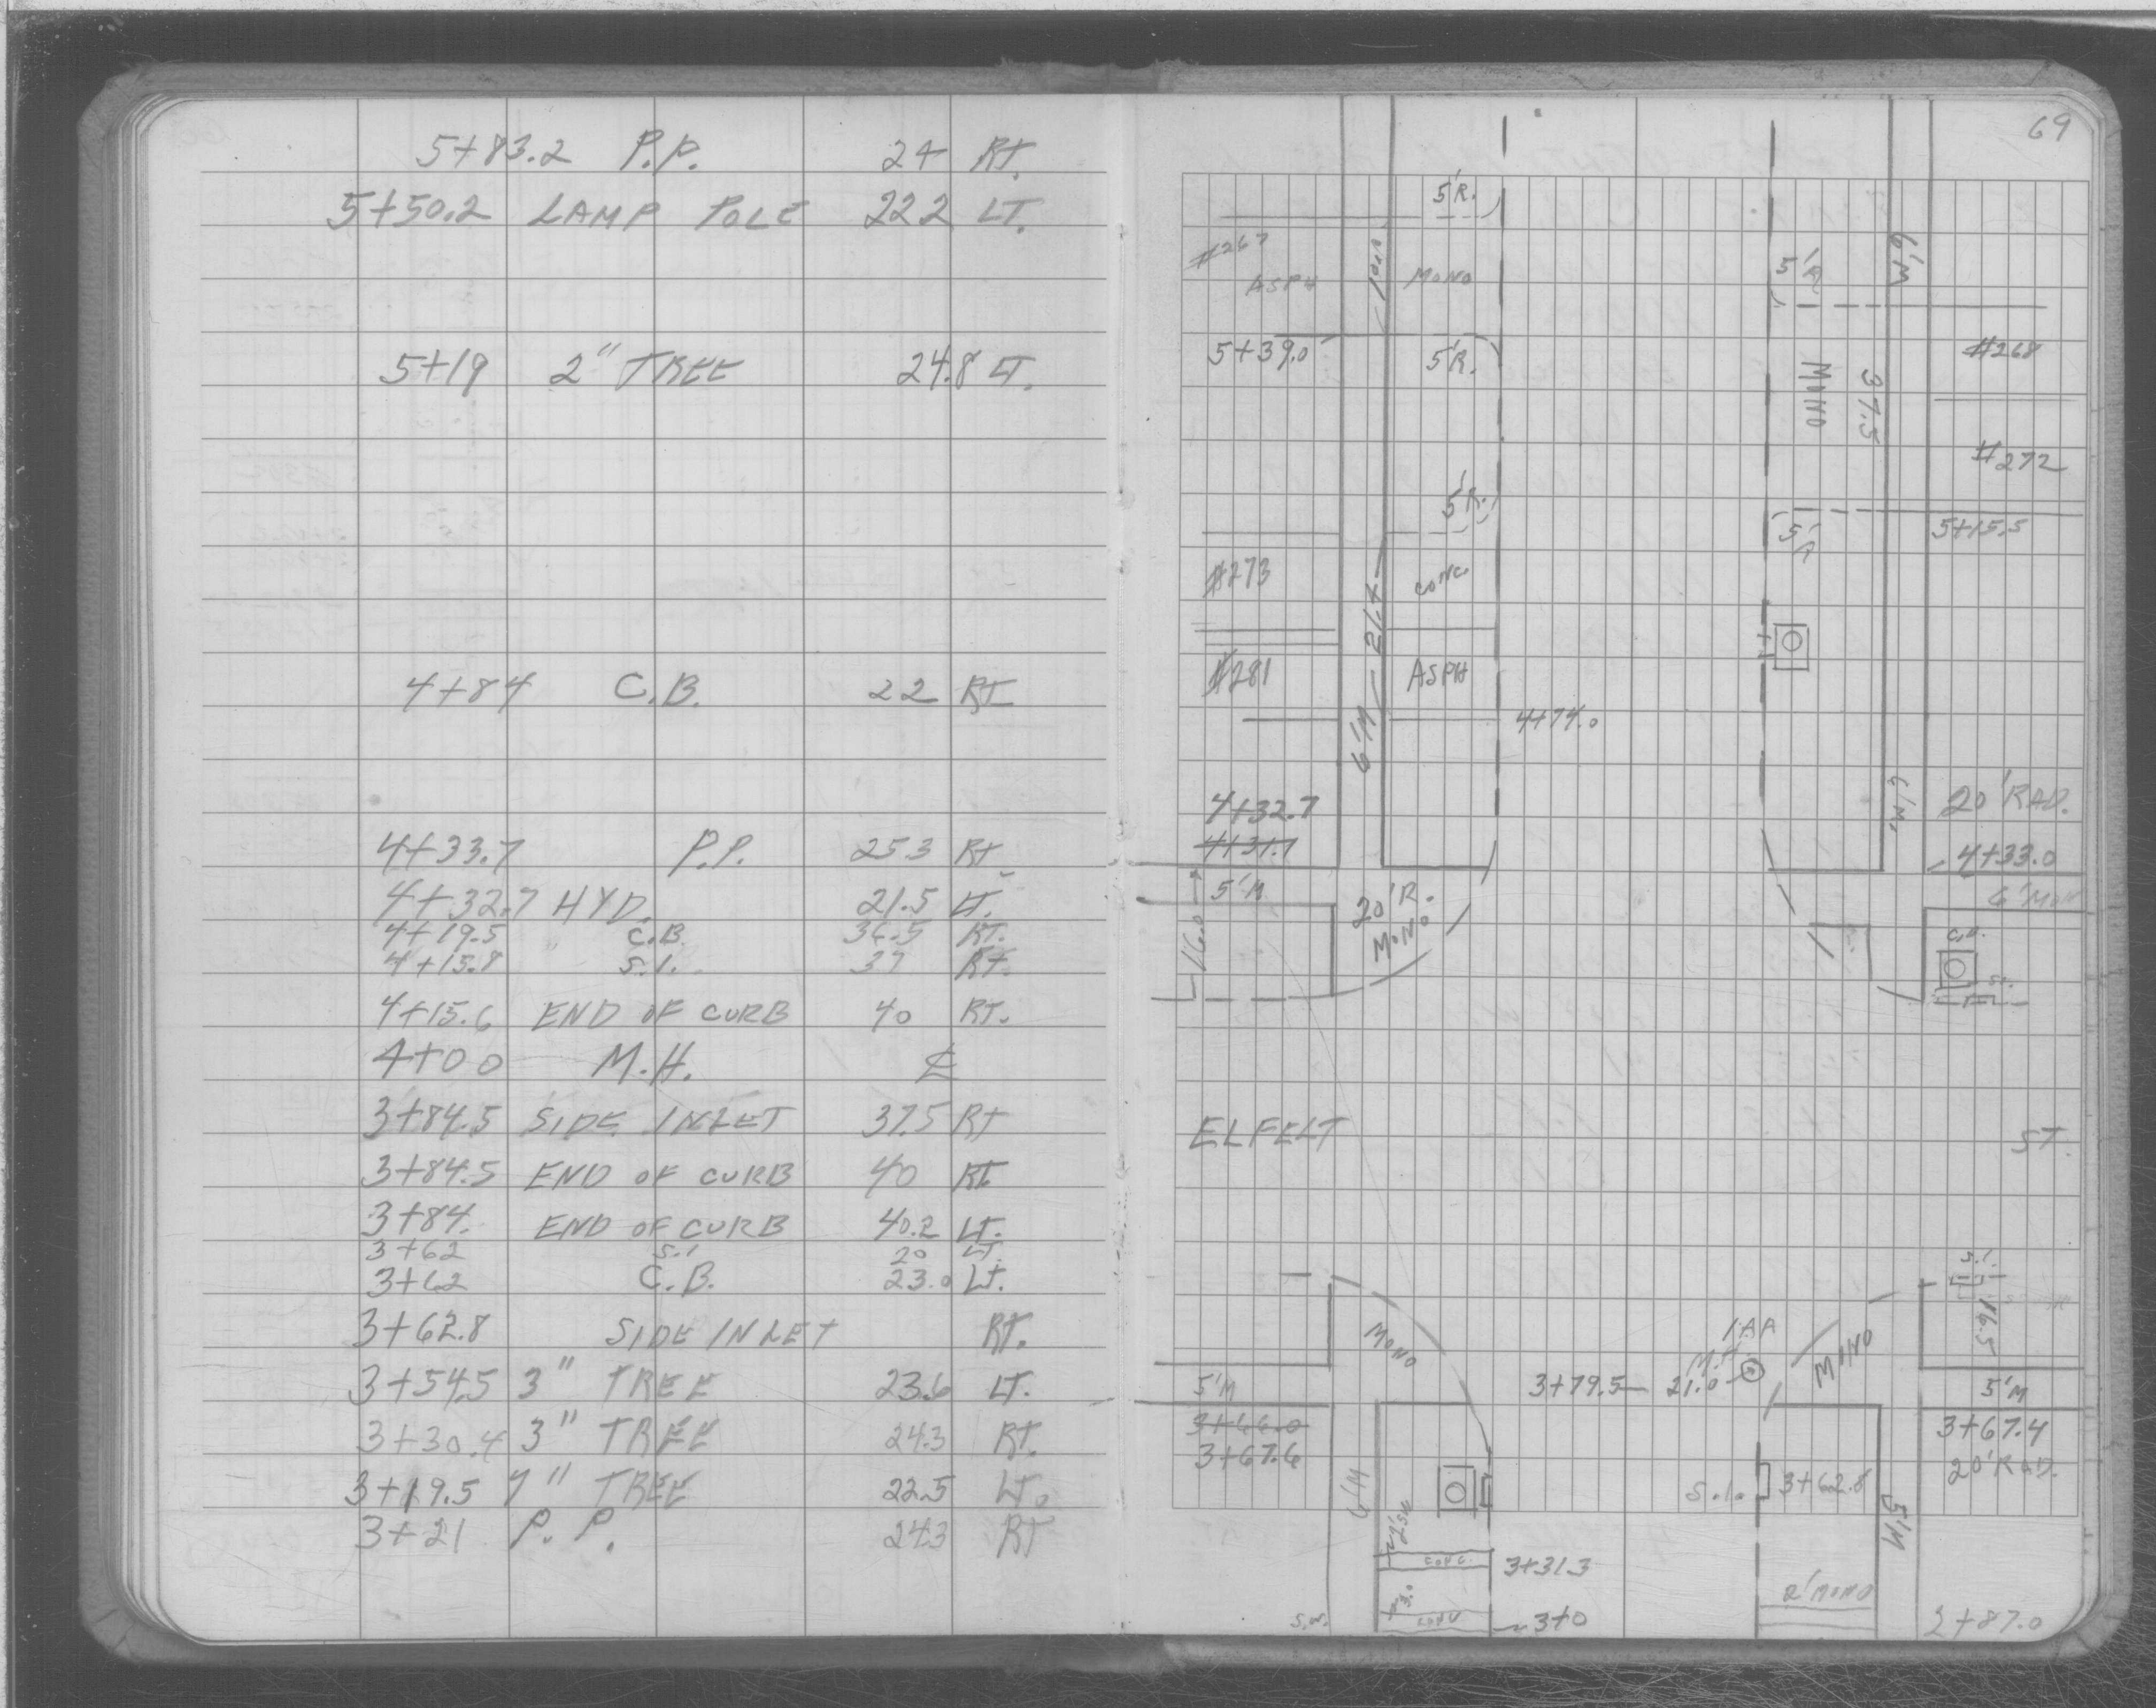 5+83.2 P.P. 24 RT.
5+50.2 LAMP POLE 22.2 LT.
5+19 2" TREE 24.8 LT.
4+84 C.B. 22 RT
4+33.7 P.P. 25.3 RT
4+32.7 HYD. 21.5 LT.
4+19.5 " C.B. 36.5 RT.
4+15.8 S.I. 37 RT.
4+15.6 END OF CURB 40 RT.
4+00 M.H. ℄
3+84.5 SIDE INLET 37.5 RT
3+84.5 END OF CURB 40 RT.
3+84. END OF CURB 40.2 LT.
3+62 S.I 20 LT.
3+62 C.B. 23.0 LT.
3+62.8 SIDE INLET RT.
3+54.5 3" TREE 23.6 LT.
3+30.4 3" TREE 24.3 RT.
3+19.5 7" TREE 22.5 LT.
3+21 P.P. 24.3 RT
69
5'R.
#267
ASPH
MONO
5'R
6'M
5+39.0
5'R.
#268
MONO
37.5
#272
5'R.
5+15.5
5'R
#273
CONC.
21.7
#281
ASPH
6'M
4+74.0
6'M.
20' RAD.
4+32.7
4+31.7
4+33.0
5'M
6'MON
20'R.
MONO
16.0
C.B.
S.I.
ELFELT ST.
S.I.
16.5
MONO
MONO
M.H.
3+79.5 21.0
5'M
5'M
3+66.0
3+67.6
3+67.4
20'RAD.
6'M
S.I.
3+62.8
5'M
CONC.
3+31.3
3.0
2'MONO
S.W.
CONC
3+0
2+87.0